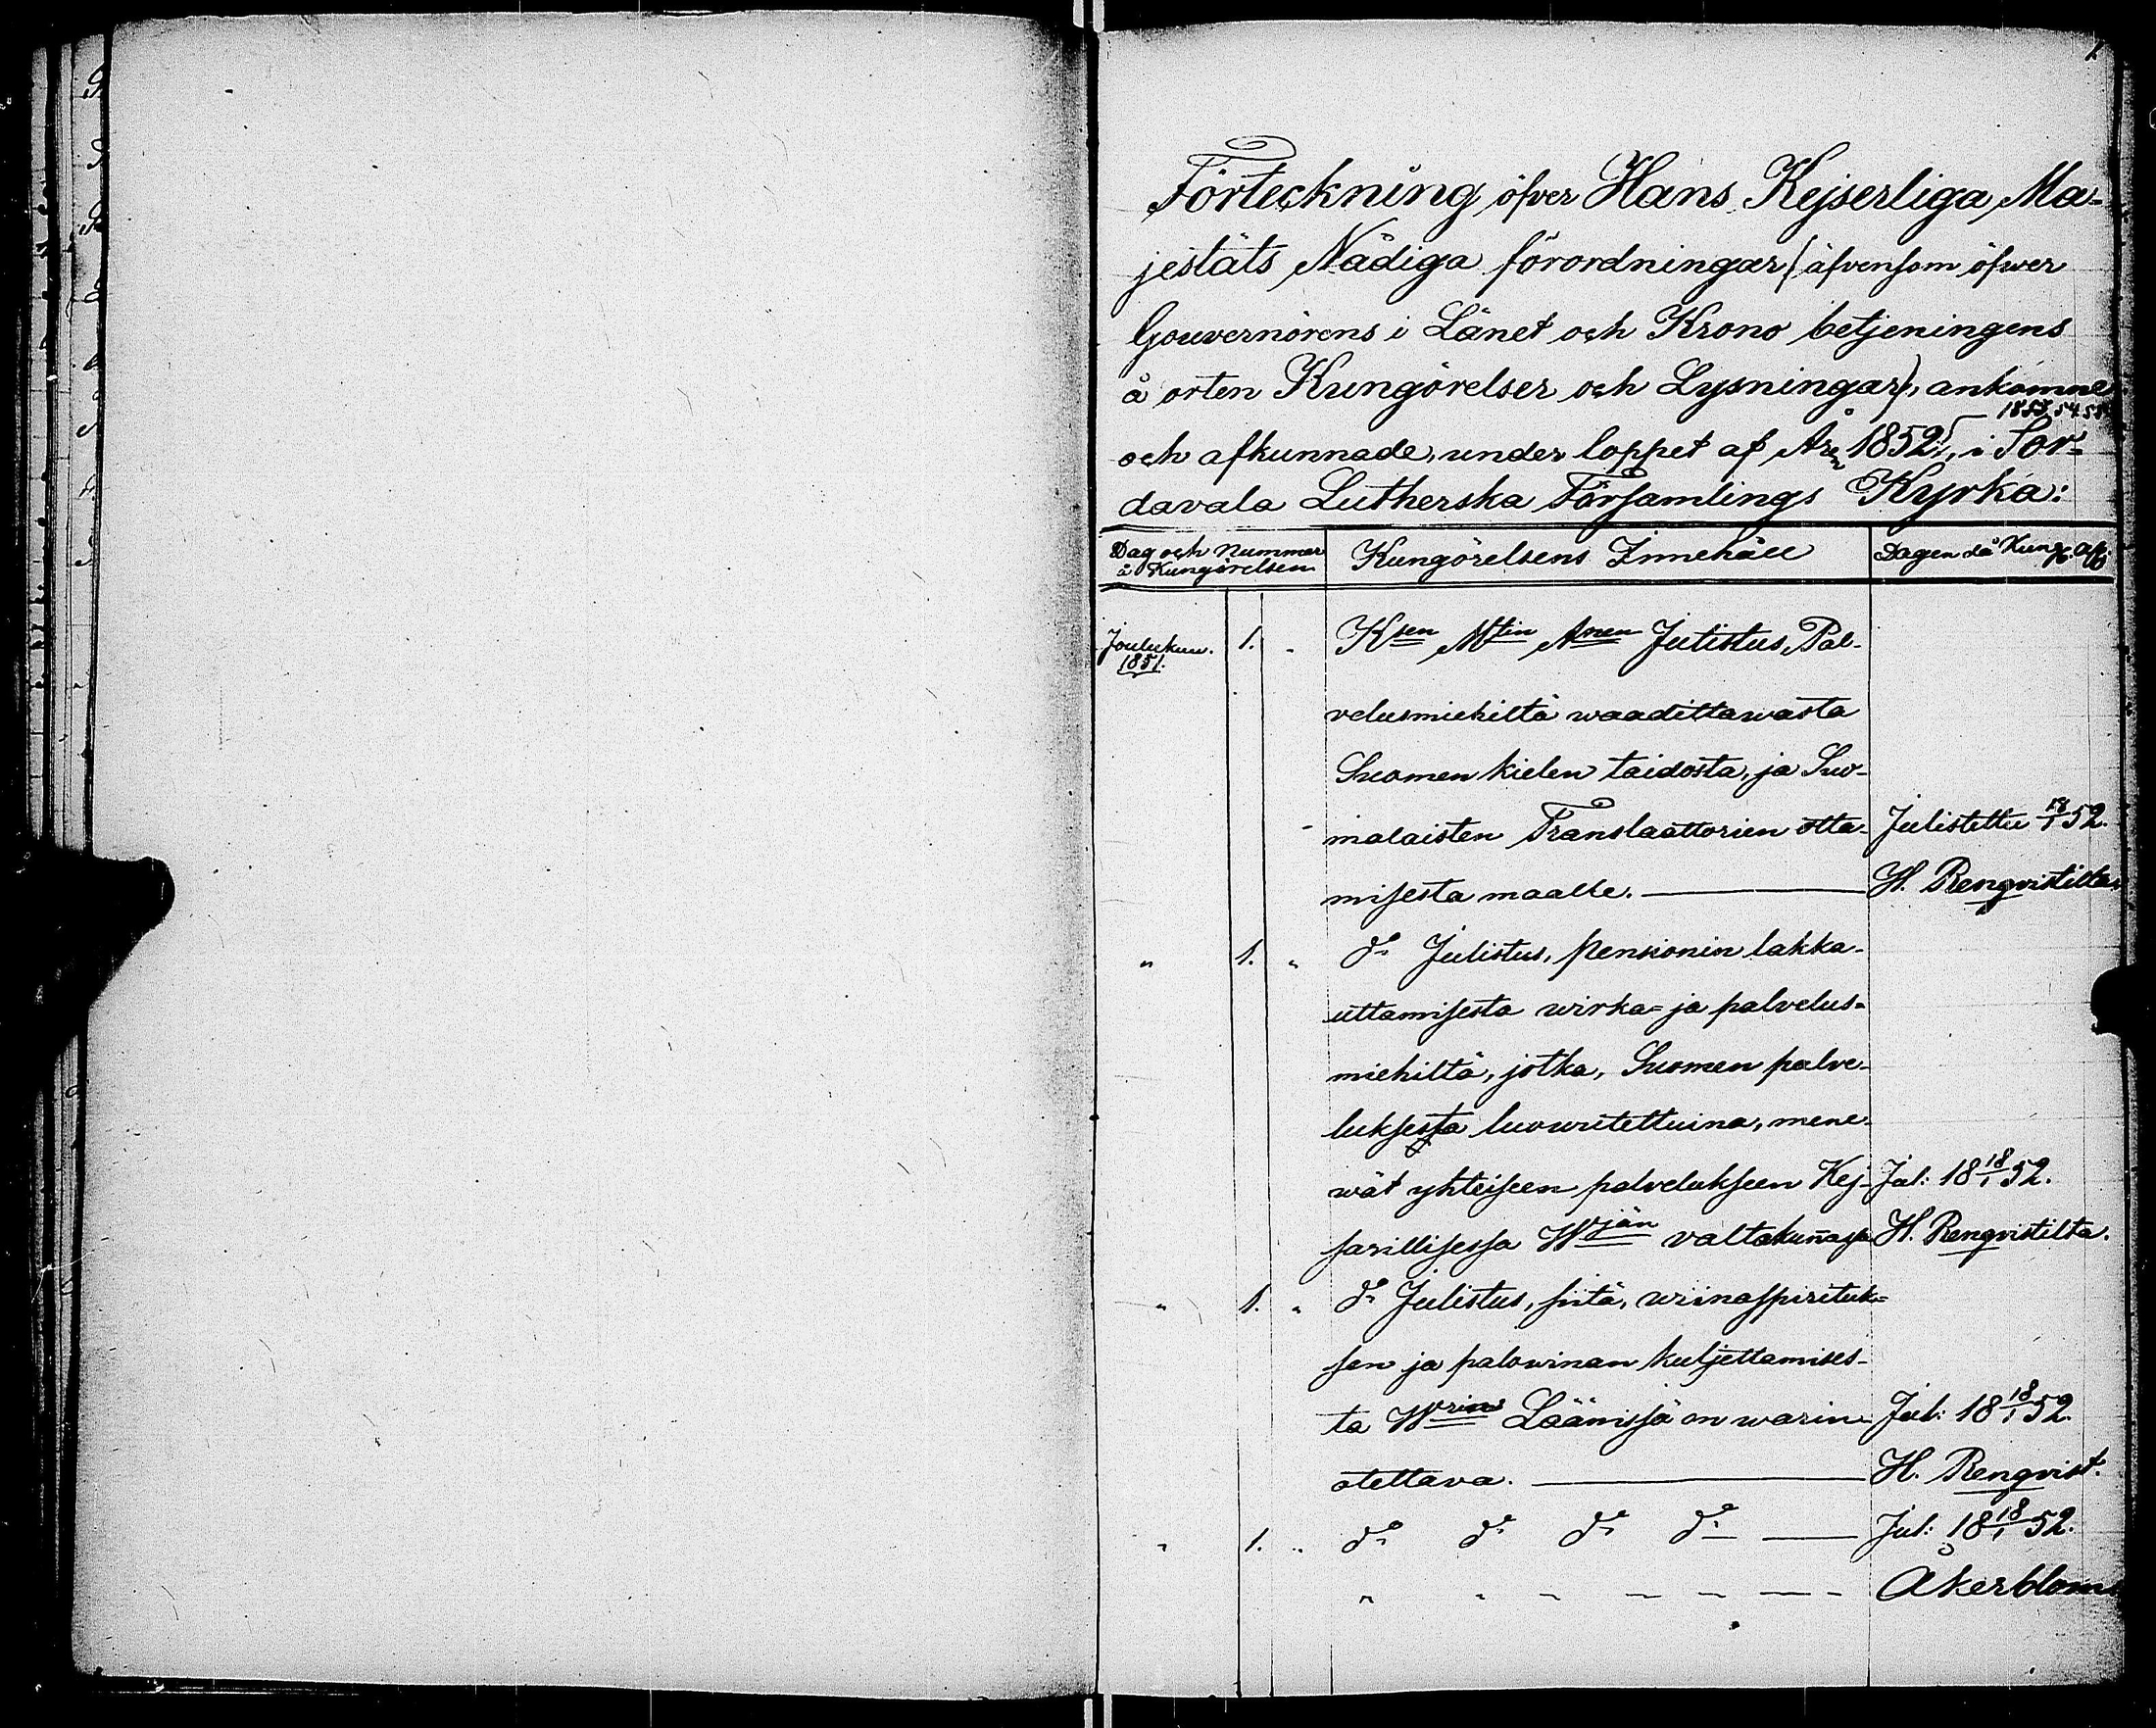 1.
Förteckning öfver Hans Kejserliga Ma-
jestäts Nådiga förordningar (äfvensom öfver
Gouvernörens i Länet och Krono betjeningens
å orten Kungörelser och Lysningar), ankomne
1853, 54. 55
och afkunnade, under loppet af Åren 1852, i Sor-
davala Lutherska Församlings Kyrka:
Dag och Nummer å Kungörelsen
Kungörelsens Innehåll
Dagen då Kung. afk.
Joulukuu. 1. " Ksen Mtin Anen Julistus, Pal-
1851.
velusmiehiltä waadittawasta
Suomen kielen taidosta, ja Suo-
malaisten Translaattorien otta- Julistettu 18/1 52.
misesta maalle. — H. Renqvistilta.
" 1. " do Julistus, pensionin lakka-
uttamisesta wirka- ja palvelus-
miehiltä, jotka, Suomen palve-
luksesta luowutettuina, mene-
wät yhteiseen palvelukseen Kej- Jul: 18 18/1 52.
sarillisessa Wjän valtakunnassa H. Renqvistilta.
" 1. " do Julistus, siitä, wiinaspirituk-
sen ja palowinan kuljettamises-
ta Wrin Läänissä on warin Jul: 18 18/1 52.
otettava. — H. Renqvist.
" 1. " do do do do — Jul: 18 18/1 52.
" " " — — — — Åkerblom